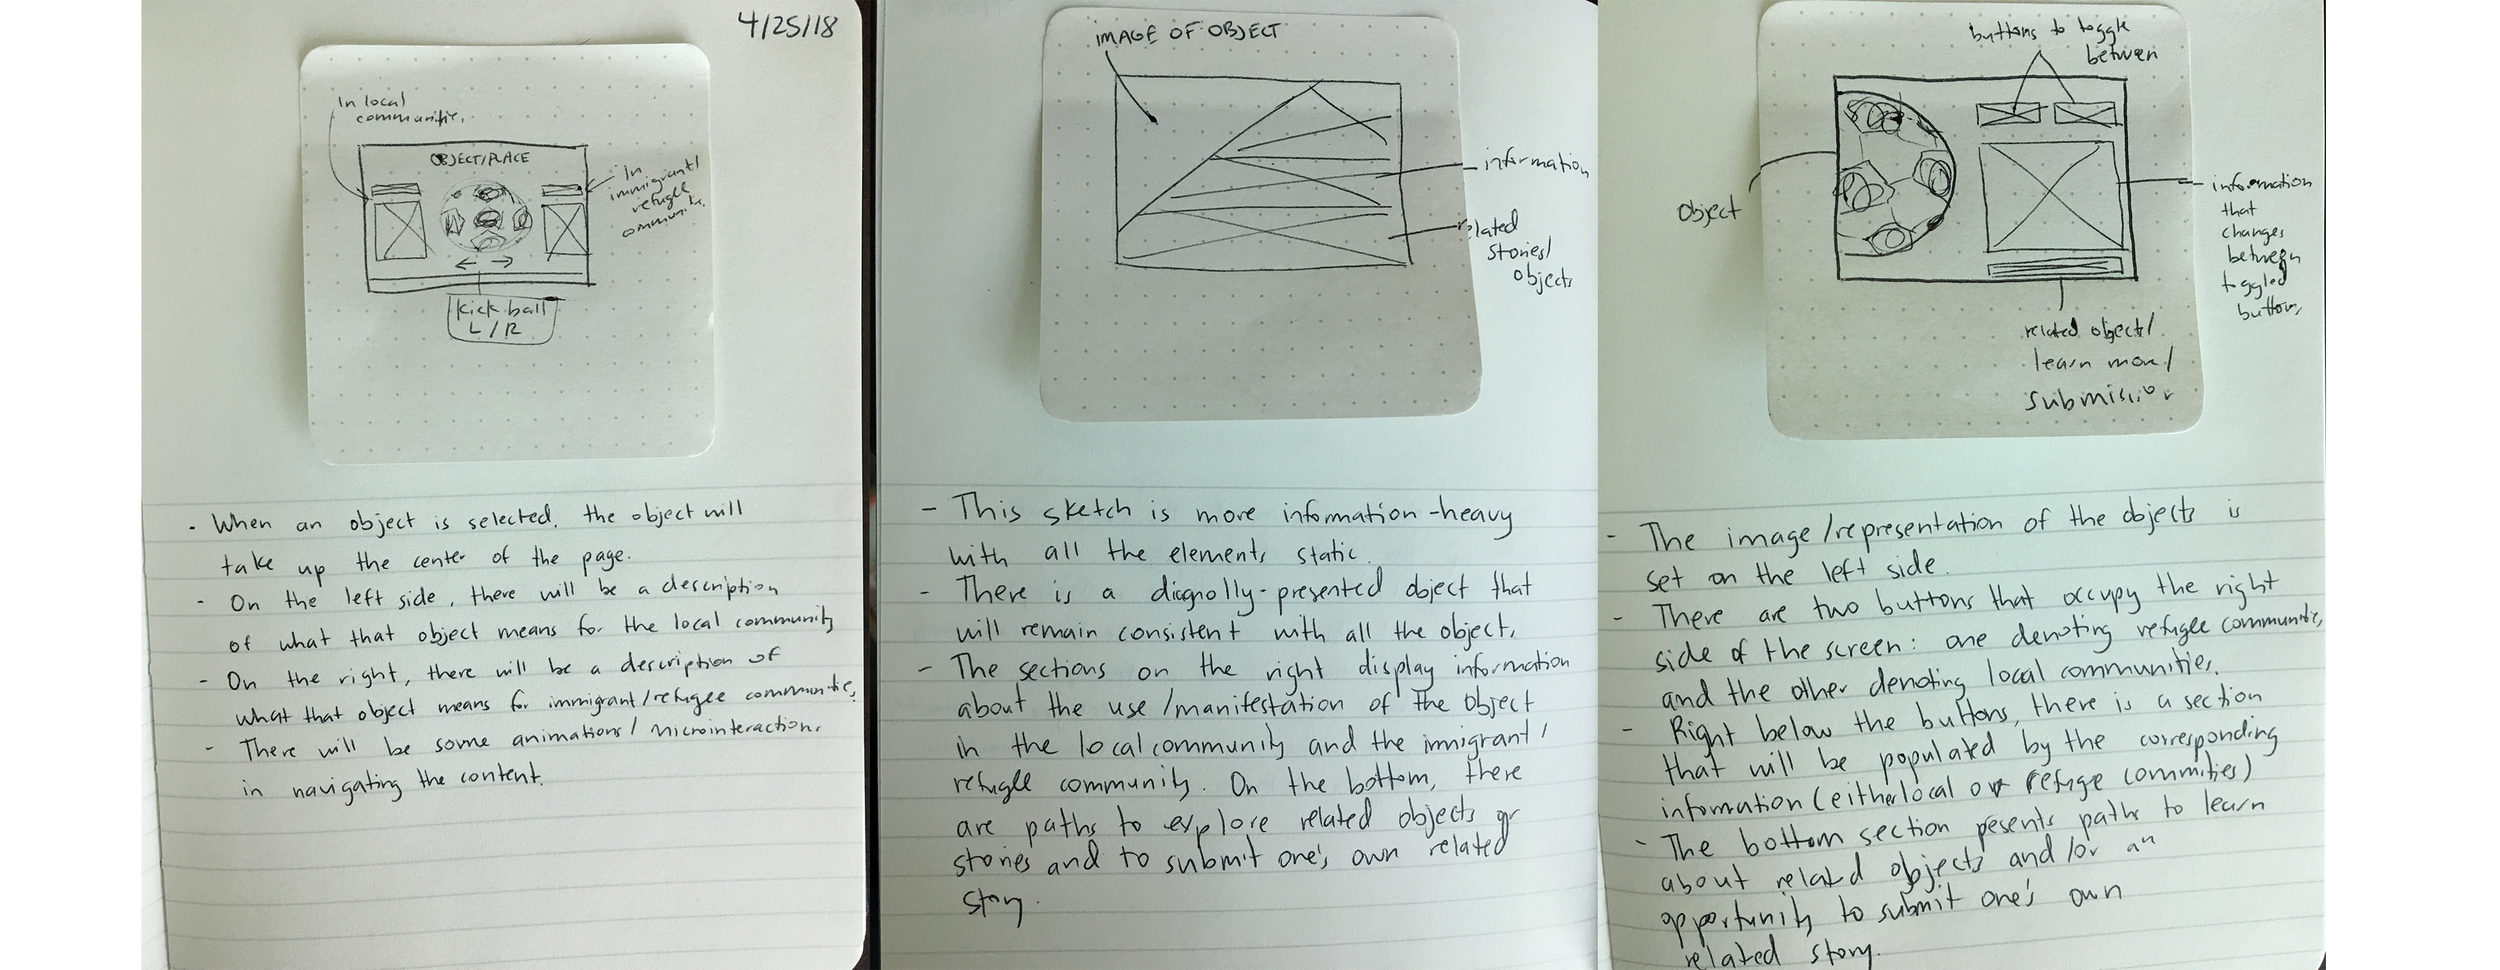 4/25/18
In local
communitie,
OBJECT/PLACE
In
immigrant/
refugee
communitie,
← →
kick ball
L/R
- When an object is selected, the object will
take up the center of the page.
- On the left side, there will be a description
of what that object means for the local community
- On the right, there will be a description of
what that object means for immigrant/refugee communitie,
- There will be some animations/microinteraction,
in navigating the content.
IMAGE OF OBJECT
information
related
stories/
objects
- This sketch is more information-heavy
with all the elements static.
- There is a diagnolly-presented object that
will remain consistent with all the object,
- The sections on the right display information
about the use/manifestation of the object
in the local community and the immigrant/
refugee community. On the bottom, there
are paths to explore related objects or
stories and to submit one's own related
story.
buttons to toggle
between
object
information
that
changes
between
toggled
button,
related object/
learn more/
submission
- The image/representation of the objects is
set on the left side.
- There are two buttons that occupy the right
side of the screen: one denoting refugee communitie,
and the other denoting local communities.
- Right below the buttons, there is a section
that will be populated by the corresponding
information (either local or refuge commities)
- The bottom section pesents paths to learn
about related objects and/or an
opportunity to submit one's own
related story.